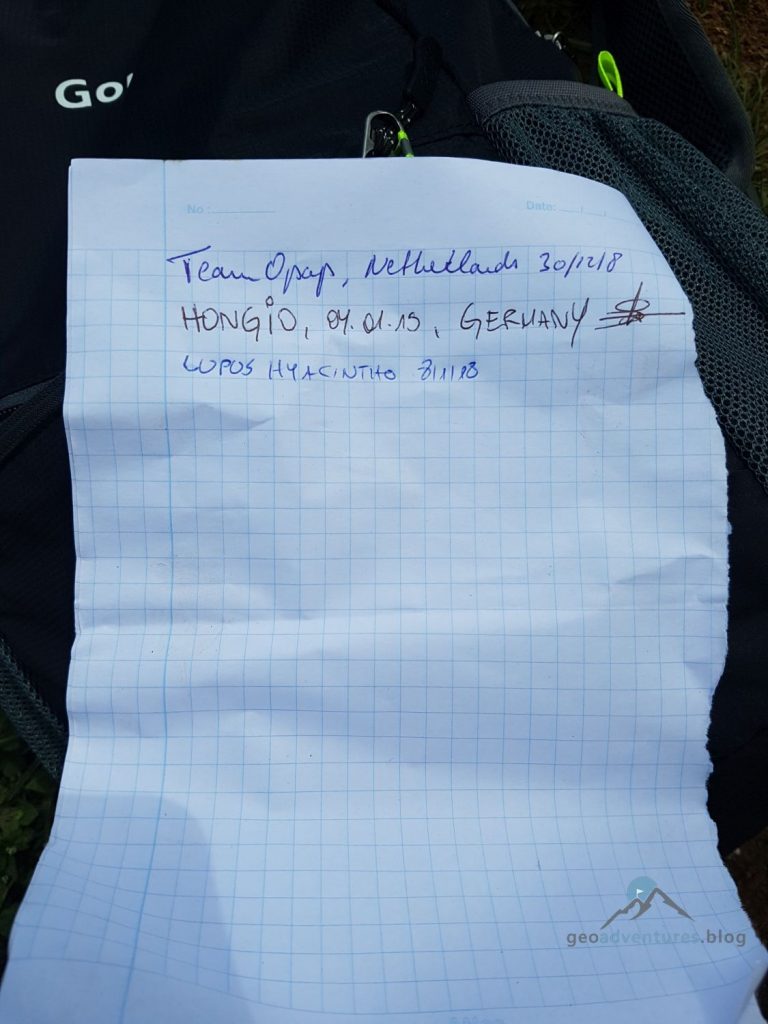 Go
No :
Date: / /
Team Opap, Netherlands 30/12/8
HONGIO, 04.01.19, GERMANY
LUPUS HYACINTHO 8/1/18
geoadventures.blog